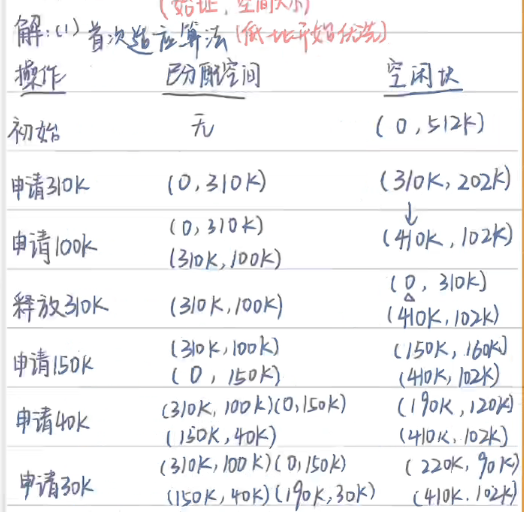 (始址, 空间大小)
解:(1) 首次适应算法 (低址开始优选)
操作 已分配空间 空闲块
初始 无 (0, 512K)
申请310K (0, 310K) (310K, 202K)
↓
申请100K (0, 310K) (410K, 102K)
(310K, 100K)
(0, 310K)
释放310K (310K, 100K) (410K, 102K)
申请150K (310K, 100K) (150K, 160K)
(0, 150K) (410K, 102K)
申请40K (310K, 100K)(0, 150K) (190K, 120K)
(150K, 40K) (410K, 102K)
申请30K (310K, 100K)(0, 150K) (220K, 90K)
(150K, 40K)(190K, 30K) (410K, 102K)